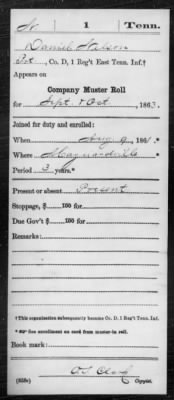 1 Tenn.
Daniel Nelson
Pvt, Co. D, 1 Reg't East Tenn. Inf.†
Appears on
Company Muster Roll
for Sept & Oct, 1863.
Joined for duty and enrolled:
When Aug 9, 186 .*
Where Maynardville
Period 3 years.*
Present or absent Present
Stoppage, $ 100 for
Due Gov't $ 100 for
Remarks:
† This organization subsequently became Co. D, 1 Reg't Tenn. Inf.
* See enrollment on card from muster-in roll.
Book mark:
Clark
(858c) Copyist.